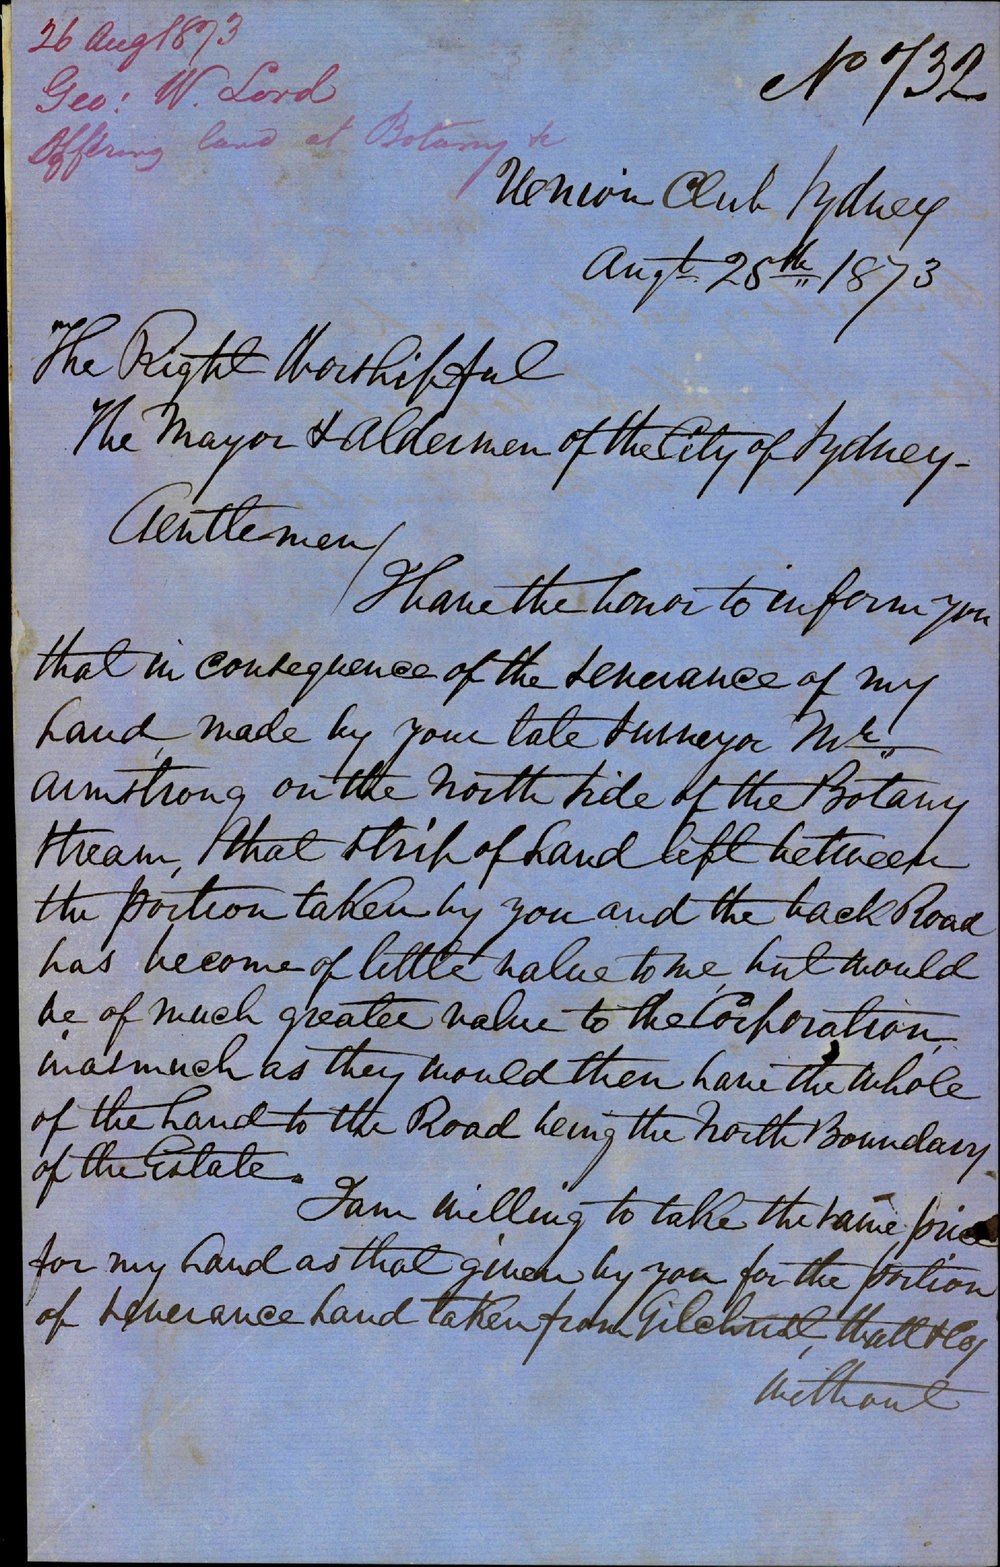 26 Aug 1873
Geo: W. Lord
Offering land at Botany &c
No 732
Union Club Sydney
Augt. 25th 1873
The Right Worshipful
The Mayor & Aldermen of the City of Sydney -
Gentlemen/
I have the honor to inform you
that in consequence of the severance of my
Land, made by your late Surveyor Mr.
Armstrong on the North Side of the Botany
Stream, that strip of Land left between
the portion taken by you and the back Road
has become of little value to me, but would
be of much greater value to the Corporation,
inasmuch as they would then have the whole
of the Land to the Road being the North Boundary
of the Estate.
I am willing to take the same price
for my Land as that given by you for the portion
of severance Land taken from Gilchrist, Watt & Co,
without